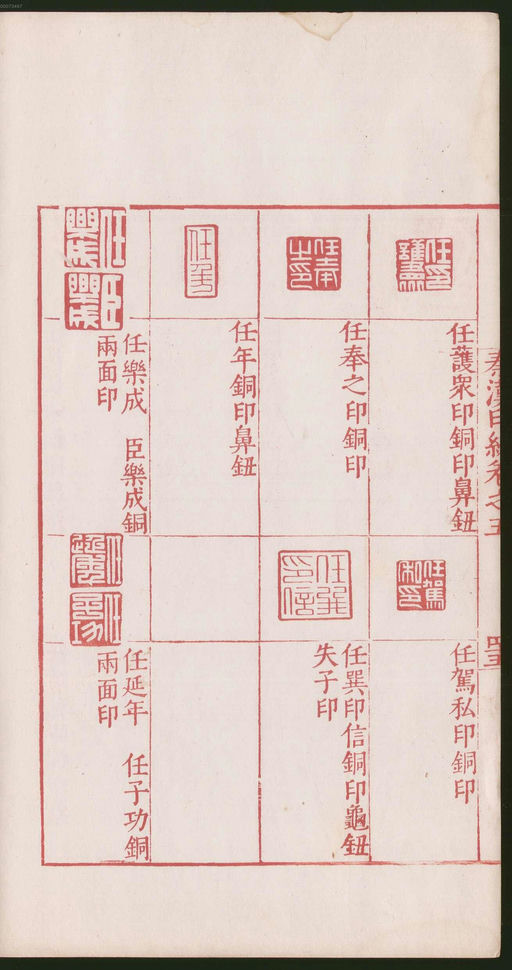 秦漢印統卷之五
四五
任護衆印銅印鼻鈕
任奉之印銅印
任年銅印鼻鈕
任樂成　臣樂成銅
兩面印
任駕私印銅印
任巽印信銅印龜鈕
失子印
任延年　任子功銅
兩面印
00073467